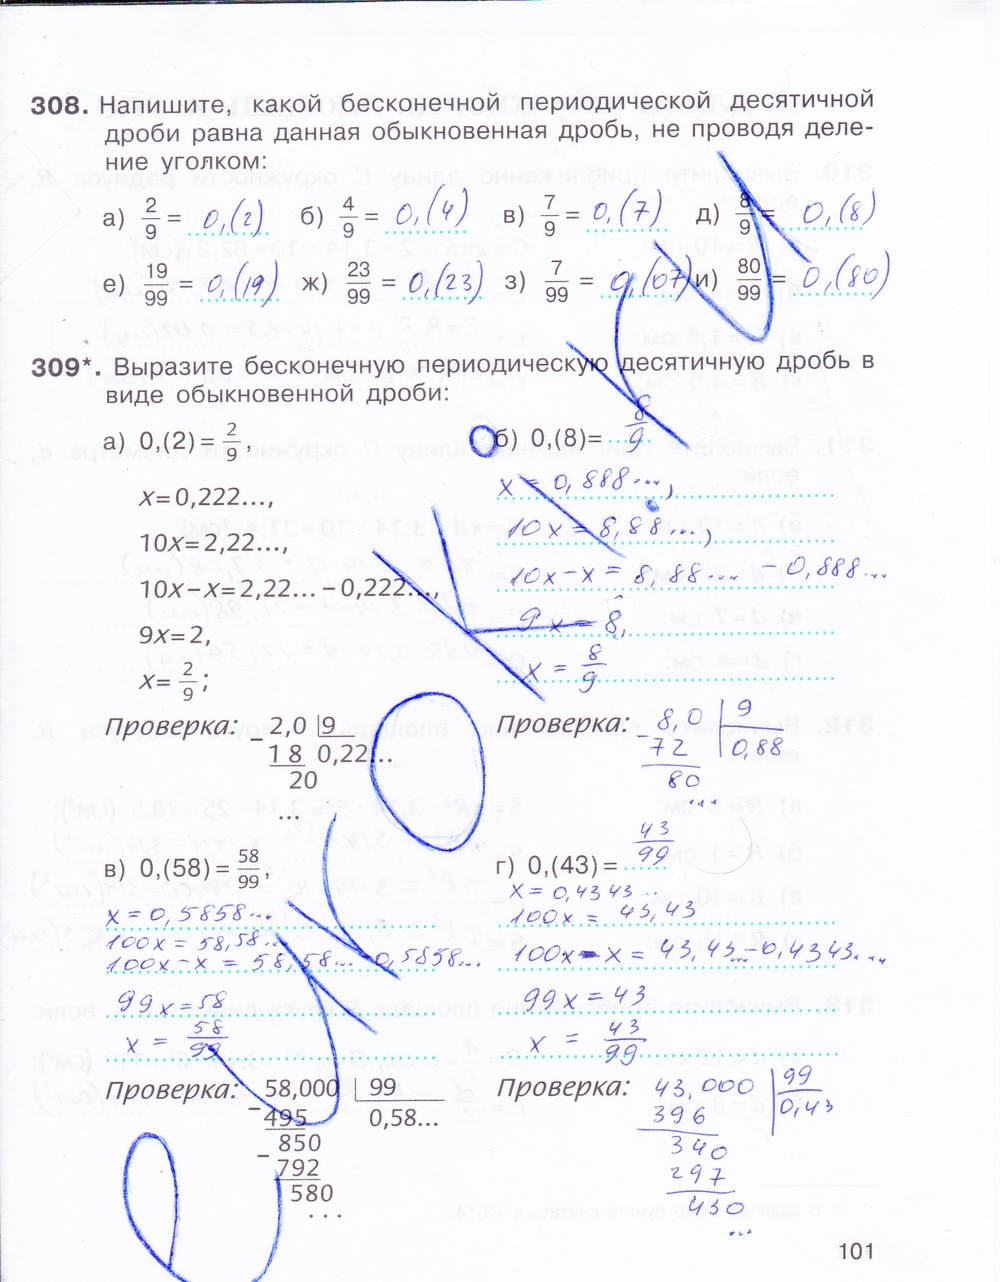 308. Напишите, какой бесконечной периодической десятичной
дроби равна данная обыкновенная дробь, не проводя деле-
ние уголком:
а) 2/9 = 0,(2) б) 4/9 = 0,(4) в) 7/9 = 0,(7) д) 8/9 = 0,(8)
е) 19/99 = 0,(19) ж) 23/99 = 0,(23) з) 7/99 = 0,(07) и) 80/99 = 0,(80)
309*. Выразите бесконечную периодическую десятичную дробь в
виде обыкновенной дроби:
а) 0,(2) = 2/9,
x = 0,222...,
10x = 2,22...,
10x - x = 2,22... - 0,222...,
9x = 2,
x = 2/9;
Проверка: 2,0 | 9
- 18 0,22...
20
...
б) 0,(8) = 8/9
x = 0,888...,
10x = 8,88...,
10x - x = 8,88... - 0,888...
9x = 8,
x = 8/9
Проверка: 8,0 | 9
- 72 0,88
80
...
в) 0,(58) = 58/99,
x = 0,5858...
100x = 58,58...
100x - x = 58,58... - 0,5858...
99x = 58
x = 58/99
Проверка: 58,000 | 99
- 495 0,58...
850
- 792
580
...
г) 0,(43) = 43/99
x = 0,4343...
100x = 43,43
100x - x = 43,43... - 0,4343...,
99x = 43
x = 43/99
Проверка: 43,000 | 99
396 0,43
340
297
430
...
101